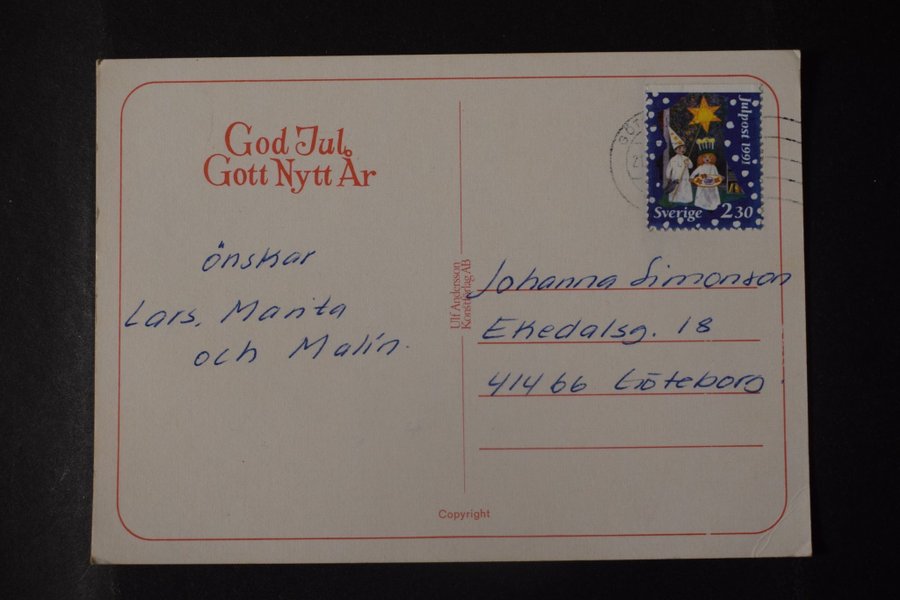 God Jul
Gott Nytt År
önskar
Lars, Marita
och Malin.
Ulf Andersson
Konstförlag AB
Julpost 1991
Sverige 230
Johanna Simonson
Ekedalsg. 18
41466 Göteborg
Copyright